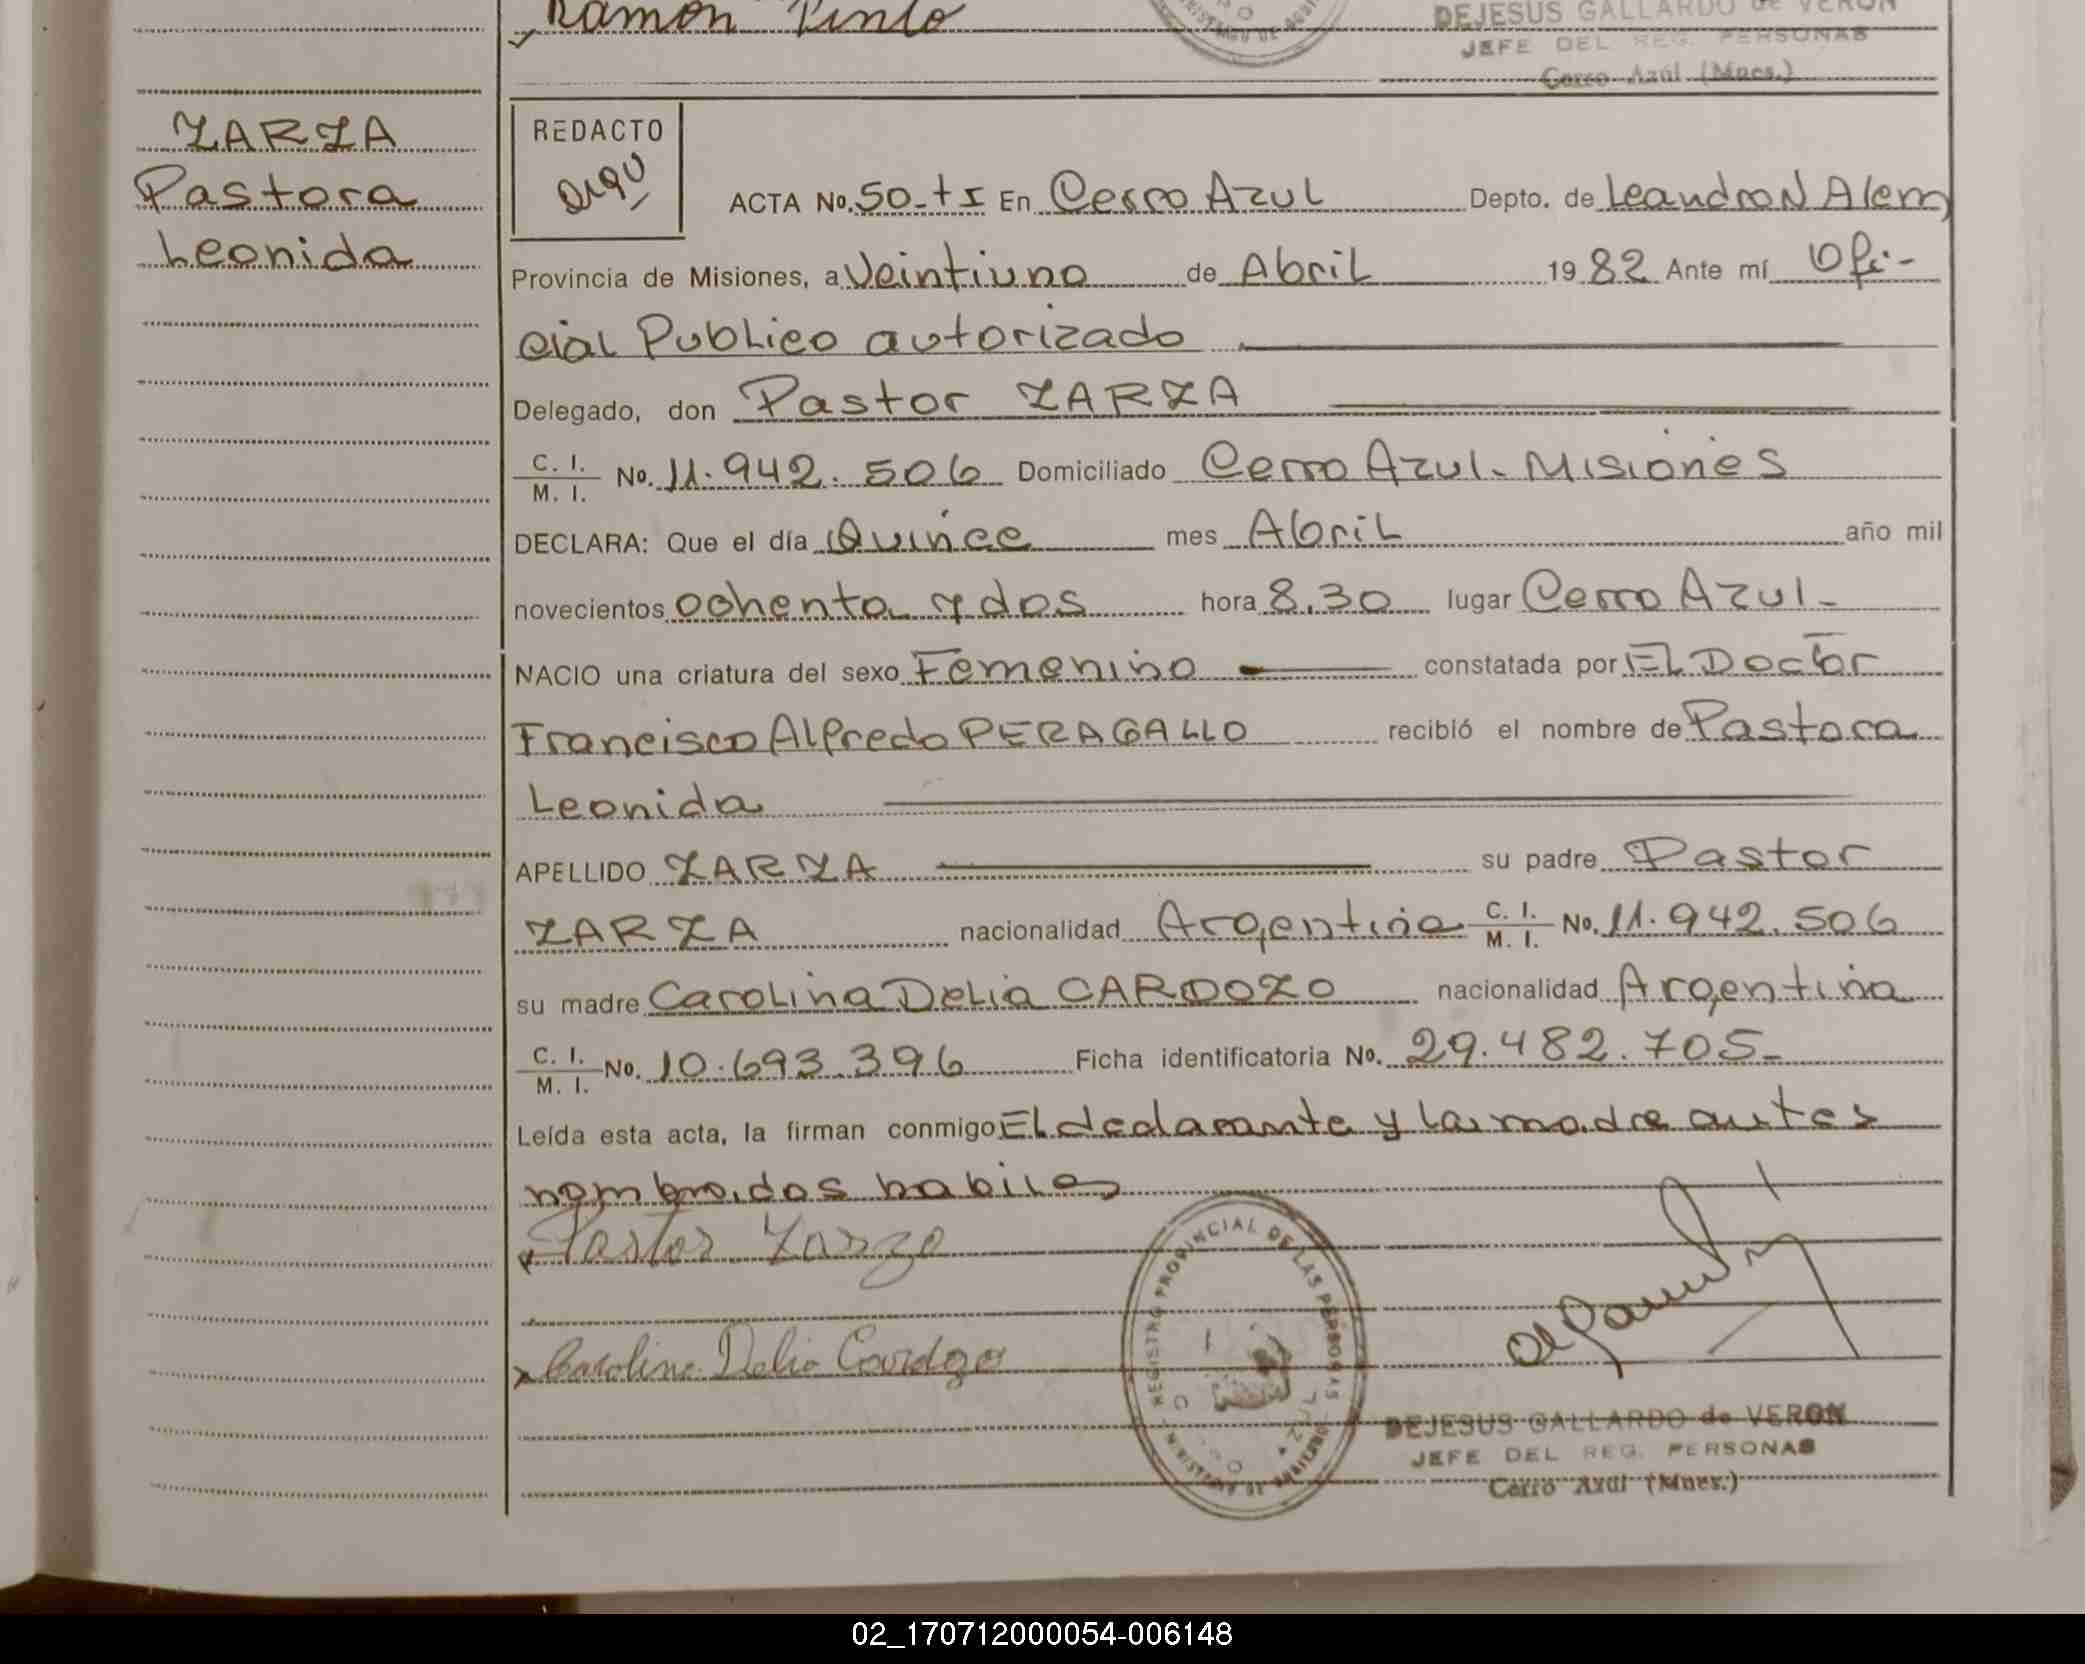 Ramón Pinto
DEJESUS GALLARDO de VERON
JEFE DEL REG. PERSONAS
Cerro Azul (Mnes.)
ZARZA
Pastora
Leonida
REDACTO
ACTA No. 50-tI En Cerro Azul Depto. de Leandro N Alem
Provincia de Misiones, a Veintiuno de Abril 1982 Ante mí Ofi-
cial Publico autorizado
Delegado, don Pastor ZARZA
C. I. / M. I. No. 11.942.506 Domiciliado Cerro Azul - Misiones
DECLARA: Que el día Quince mes Abril año mil
novecientos ochenta y dos hora 8.30 lugar Cerro Azul -
NACIO una criatura del sexo Femenino constatada por EL Doctor
Francisco Alfredo PERAGALLO recibió el nombre de Pastora
Leonida
APELLIDO ZARZA su padre Pastor
ZARZA nacionalidad Argentina C. I. / M. I. No. 11.942.506
su madre Carolina Delia CARDOZO nacionalidad Argentina
C. I. / M. I. No. 10.693.396 Ficha identificatoria No. 29.482.705-
Leída esta acta, la firman conmigo El declarante y la madre antes
nombrados habiles
Pastor Zarza
Carolina Delia Cardozo
REGISTRO PROVINCIAL DE LAS PERSONAS
DEJESUS GALLARDO de VERON
JEFE DEL REG. PERSONAS
Cerro Azul (Mnes.)
02_170712000054-006148